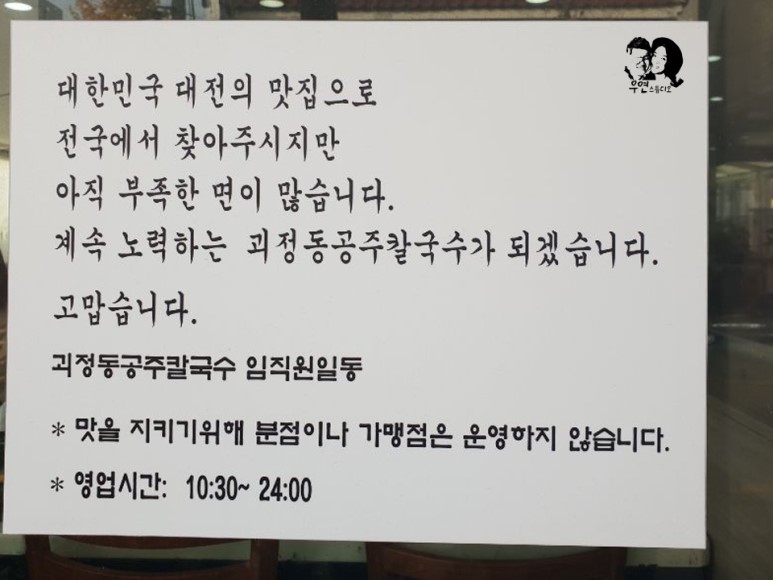 우연스튜디오
대한민국 대전의 맛집으로
전국에서 찾아주시지만
아직 부족한 면이 많습니다.
계속 노력하는 괴정동공주칼국수가 되겠습니다.
고맙습니다.
괴정동공주칼국수 임직원일동
* 맛을 지키기위해 분점이나 가맹점은 운영하지 않습니다.
* 영업시간: 10:30~ 24:00